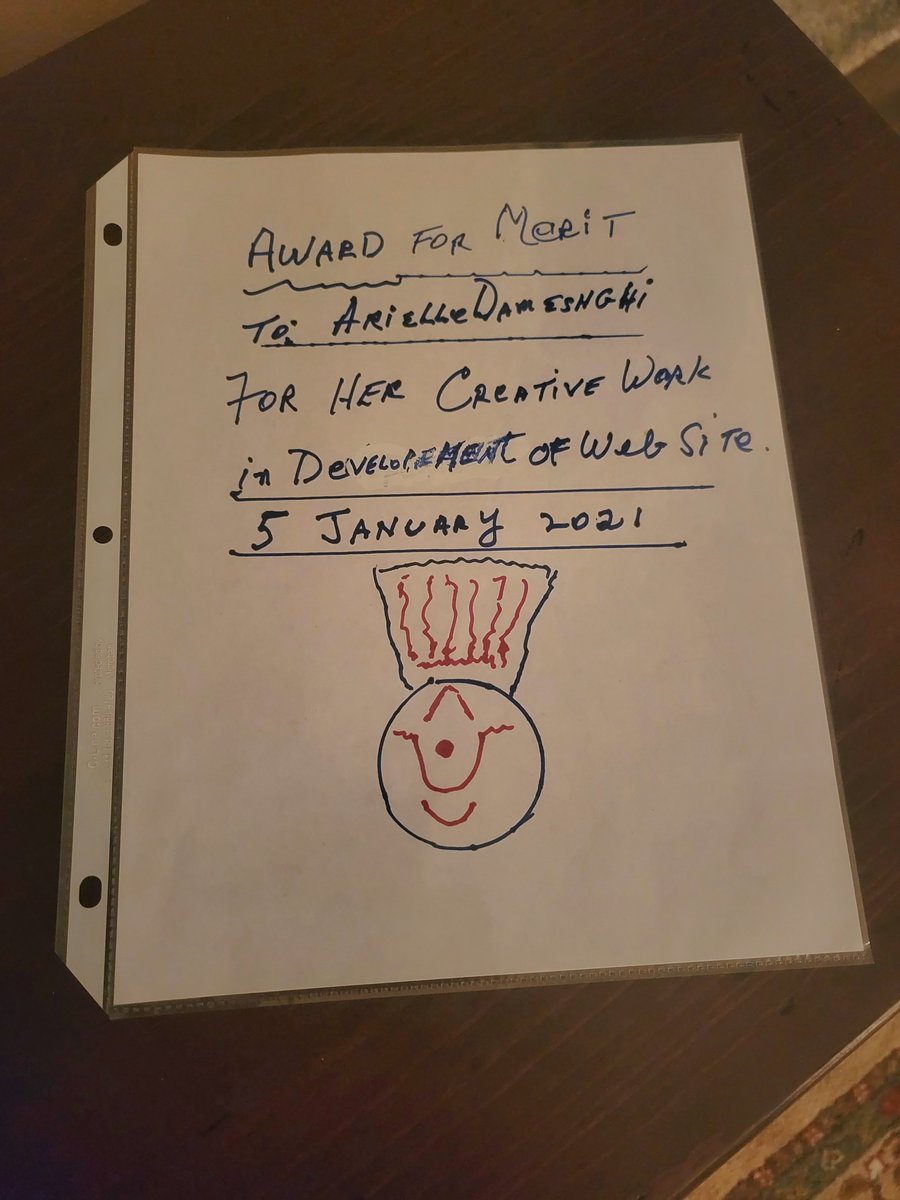 AWARD FOR MeRiT
To: ARiELLe DAMESNGHi
FOR HER CREATIVE WORK
in DEVELOPEMENT OF Web SiTe.
5 JANUARY 2021